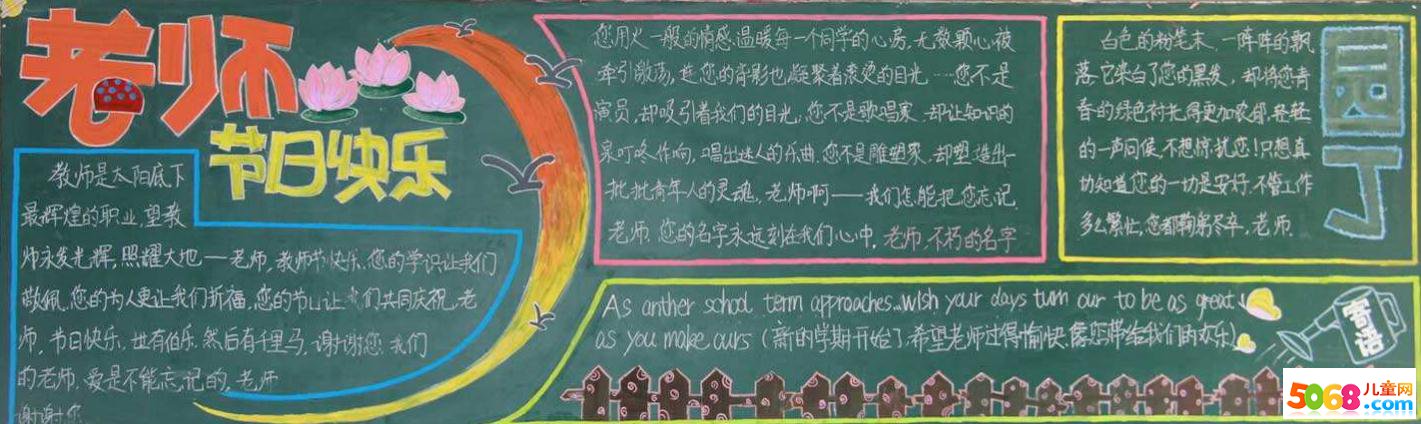 老师
节日快乐
教师是太阳底下
最辉煌的职业,望教
师永发光辉,照耀大地——老师,教师节快乐.您的学识让我们
敬佩,您的为人更让我们祈福,您的节日让我们共同庆祝,老
师,节日快乐.世有伯乐.然后有千里马,谢谢您.我们
的老师.爱是不能忘记的,老师
谢谢您
您用火一般的情感温暖每一个同学的心房,无数颗心被
牵引激荡,连您的背影也凝聚着滚烫的目光……您不是
演员,却吸引着我们的目光,您不是歌唱家.却让知识的
泉叮咚作响,唱出迷人的乐曲,您不是雕塑家,却塑造出一
批批青年人的灵魂,老师啊——我们怎能把您忘记.
老师.您的名字永远刻在我们心中,老师.不朽的名字
白色的粉笔末,一阵阵的飘
落.它染白了您的黑发,却将您青
春的绿色衬托得更加浓郁,轻轻
的一声问候,不想惊扰您!只想真
切知道您的一切是安好,不管工作
多么繁忙,您都鞠躬尽卒,老师.
园丁
As anther school term approaches..wish your days turn our to be as great
as you make ours (新的学期开始了.希望老师过得愉快.像您带给我们的欢乐).
寄语
5068儿童网
.com